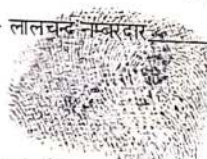 लालचन्द नम्बरदार